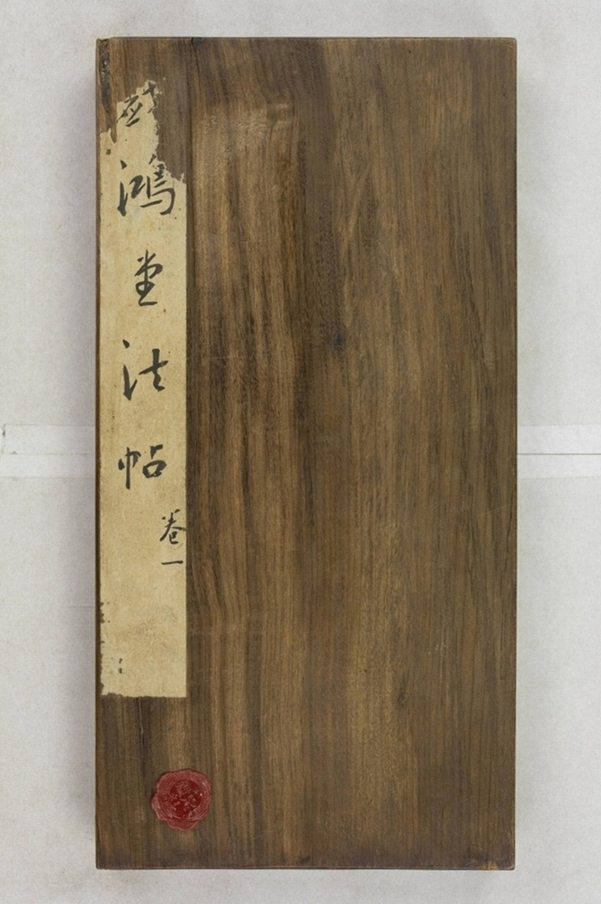 戲鴻堂法帖
卷一